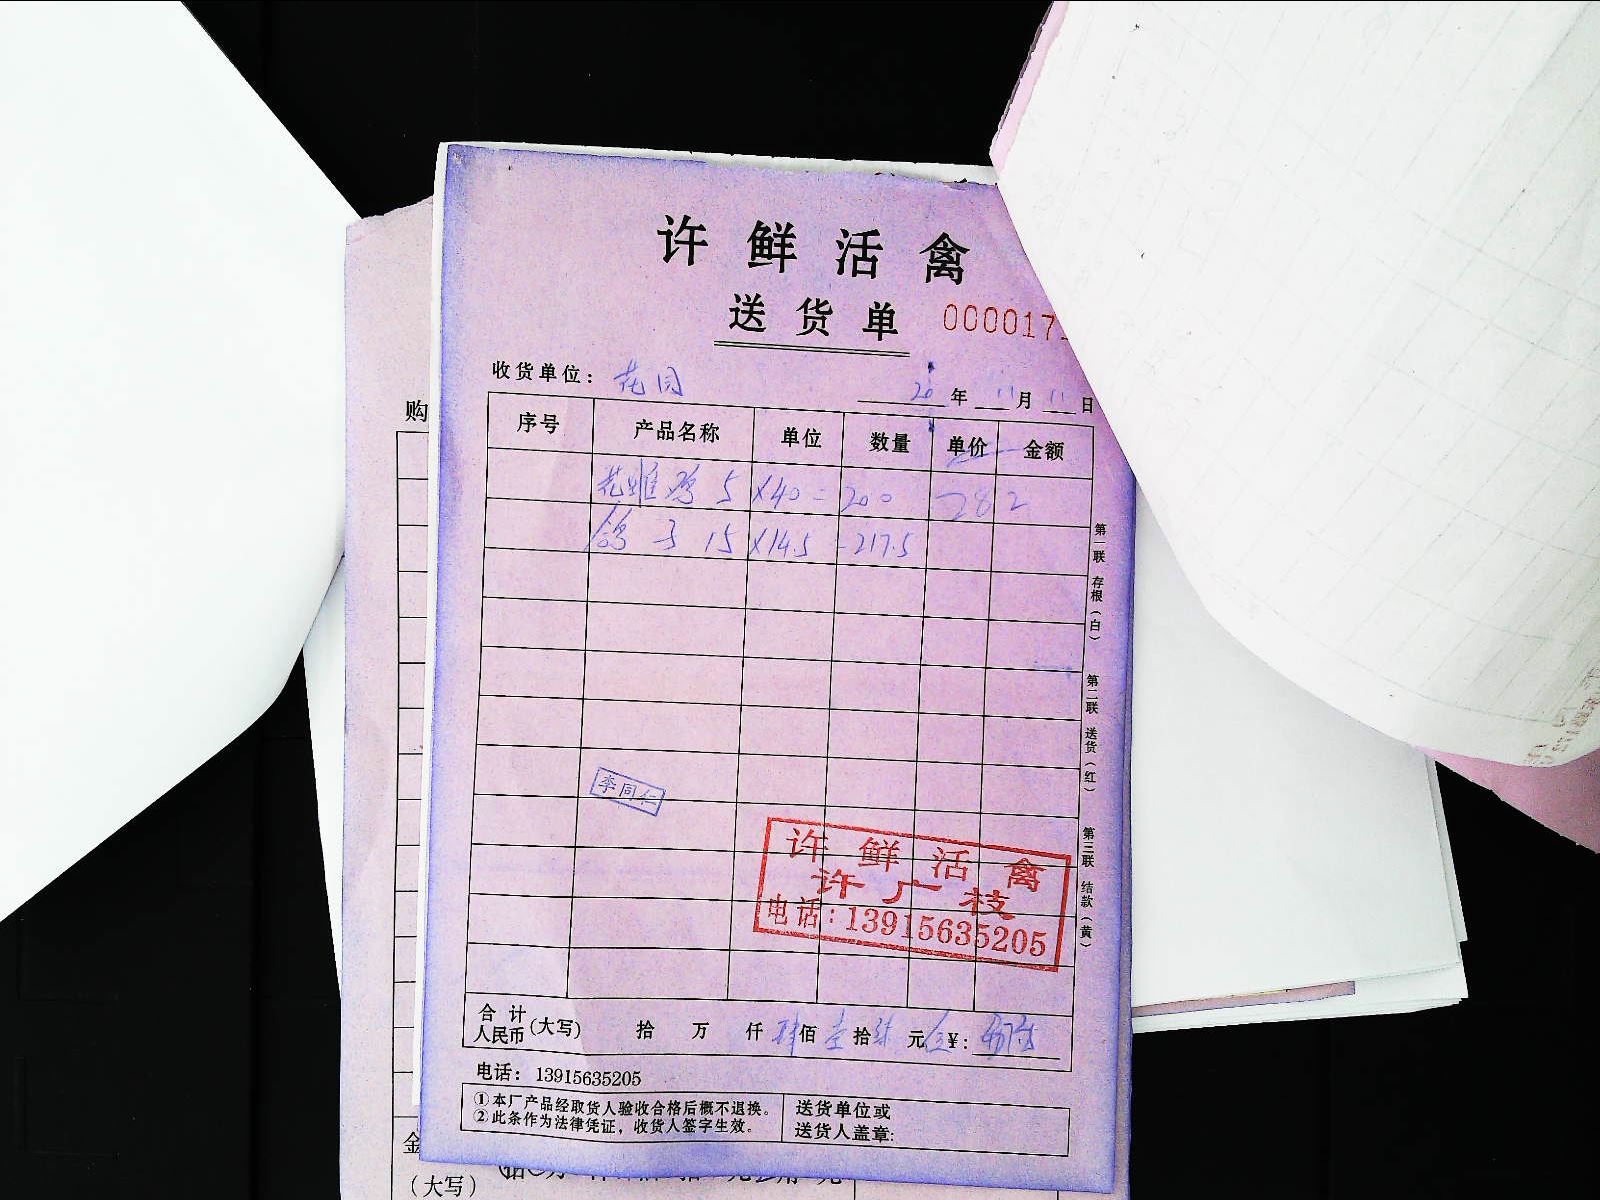 许鲜活禽
送货单 000017
收货单位： 花园 20年11月11日
序号 产品名称 单位 数量 单价 金额
花雎鸡 5 X40 = 200 282
鸽子 15 X14.5 -217.5
第一联 存根（白） 第二联 送货（红） 第三联 结款（黄）
李同仁
许鲜活禽
许广枝
电话：13915635205
合计人民币(大写) 拾 万 仟 肆佰 壹拾 柒元 ¥：
电话：13915635205
①本厂产品经取货人验收合格后概不退换。
②此条作为法律凭证，收货人签字生效。
送货单位或
送货人盖章:
购
金
(大写)